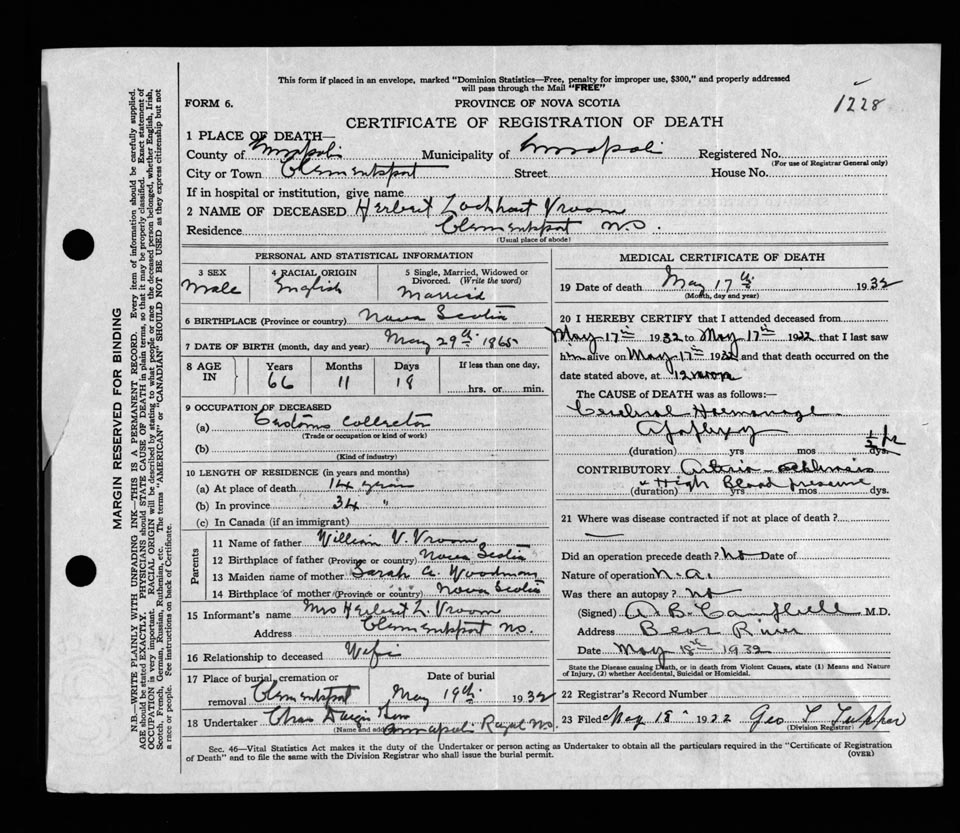 This form if placed in an envelope, marked "Dominion Statistics—Free, penalty for improper use, $300," and properly addressed
will pass through the Mail "FREE"
1228
FORM 6.
PROVINCE OF NOVA SCOTIA
CERTIFICATE OF REGISTRATION OF DEATH
1 PLACE OF DEATH—
County of Annapolis Municipality of Annapolis Registered No.
(For use of Registrar General only)
City or Town Clementsport Street House No.
If in hospital or institution, give name
2 NAME OF DECEASED Herbert Lockhart Vroom
Residence Clementsport N.S.
(Usual place of abode)
PERSONAL AND STATISTICAL INFORMATION
3 SEX
Male
4 RACIAL ORIGIN
English
5 Single, Married, Widowed or
Divorced. (Write the word)
Married
6 BIRTHPLACE (Province or country) Nova Scotia
7 DATE OF BIRTH (month, day and year) May 29th 1865
8 AGE
IN
Years
66
Months
11
Days
18
If less than one day,
hrs. or min.
9 OCCUPATION OF DECEASED
(a) Customs Collector
(Trade or occupation or kind of work)
(b)
(Kind of industry)
10 LENGTH OF RESIDENCE (in years and months)
(a) At place of death 14 years
(b) In province 34 "
(c) In Canada (if an immigrant)
Parents
11 Name of father William V. Vroom
12 Birthplace of father (Province or country) Nova Scotia
13 Maiden name of mother Sarah A. Woodman
14 Birthplace of mother (Province or country) Nova Scotia
15 Informant's name Mrs Herbert L. Vroom
Address Clementsport N.S.
16 Relationship to deceased Wife
17 Place of burial, cremation or
removal Clementsport
Date of burial
May 19th 1932
18 Undertaker Chas
(Name and address)
Annapolis Royal N.S.
MEDICAL CERTIFICATE OF DEATH
19 Date of death May 17th 1932
(Month, day and year)
20 I HEREBY CERTIFY that I attended deceased from
May 17th 1932 to May 17th 1932 that I last saw
him alive on May 17th 1932 and that death occurred on the
date stated above, at 12 noon
The CAUSE of DEATH was as follows:—
Cerebral Haemorrhage
Apoplexy
(duration) yrs mos dys. 1/2 hr
CONTRIBUTORY Arterio-sclerosis
& High Blood pressure
(duration) yrs mos dys.
21 Where was disease contracted if not at place of death?
Did an operation precede death? No Date of
Nature of operation N.A.
Was there an autopsy? No
(Signed) A. B. Campbell M.D.
Address Bear River
Date May 18th 1932
State the Disease causing Death, or in death from Violent Causes, state (1) Means and Nature
of Injury, (2) whether Accidental, Suicidal or Homicidal.
22 Registrar's Record Number
23 Filed May 18" 1932 Geo T Tupper
(Division Registrar)
Sec. 46—Vital Statistics Act makes it the duty of the Undertaker or person acting as Undertaker to obtain all the particulars required in the "Certificate of Registration
of Death" and to file the same with the Division Registrar who shall issue the burial permit.
(OVER)
MARGIN RESERVED FOR BINDING
N.B.—WRITE PLAINLY WITH UNFADING INK—THIS IS A PERMANENT RECORD. Every item of information should be carefully supplied.
AGE should be stated EXACTLY. PHYSICIANS should STATE CAUSE OF DEATH in plain terms, so that it may be properly classified. Exact statement of
OCCUPATION is very important. RACIAL ORIGIN will be described by stating to what people or race the deceased person belonged, whether English, Irish,
Scotch, French, German, Russian, Ruthenian, etc. The terms "AMERICAN" or "CANADIAN" SHOULD NOT BE USED as they express citizenship but not
a race or people. See instructions on back of Certificate.